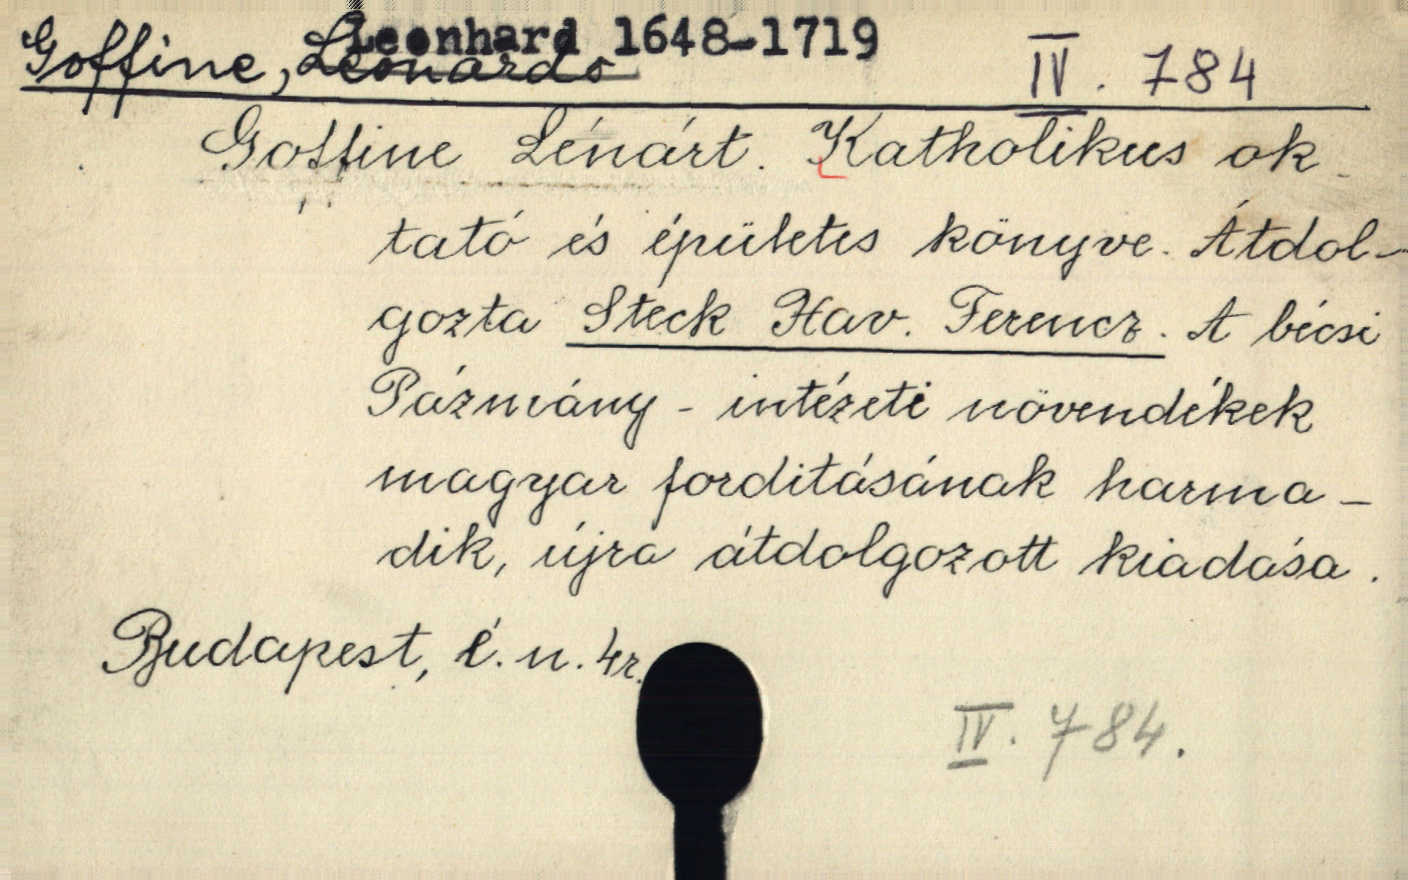 Leonhard 1648-1719
Goffine, Leonardo
IV. 784
Goffine Lénárt. Katholikus ok-
tató és épületes könyve. Átdol-
gozta Steck Hav. Ferencz. A bécsi
Pázmány-intézeti növendékek
magyar forditásának harma-
dik, újra átdolgozott kiadása.
Budapest, é. n. 4r.
IV. 784.